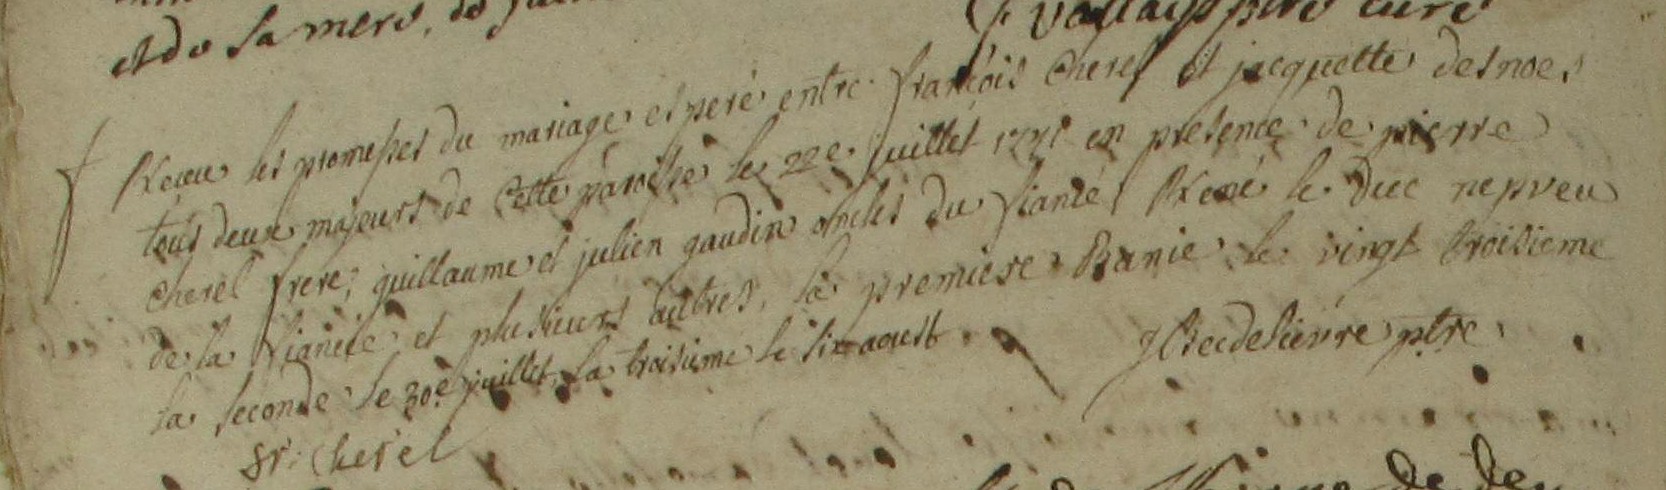 et de sa mere,
curé
Receu les promesses du mariage esperé entre françois Cherel et jacquette desnoes
tous deux majeurs de cette paroisse le 22e juillet en presence de pierre
cherel frere, guillaume et julien gaudin oncles du fiancé, René le duc nepveu
de la fiancée et plusieurs autres, la premiere Banie le vingt troisieme
la seconde le 30e juillet, la troisieme le six aoust
J Becdelievre ptre
fr: cherel